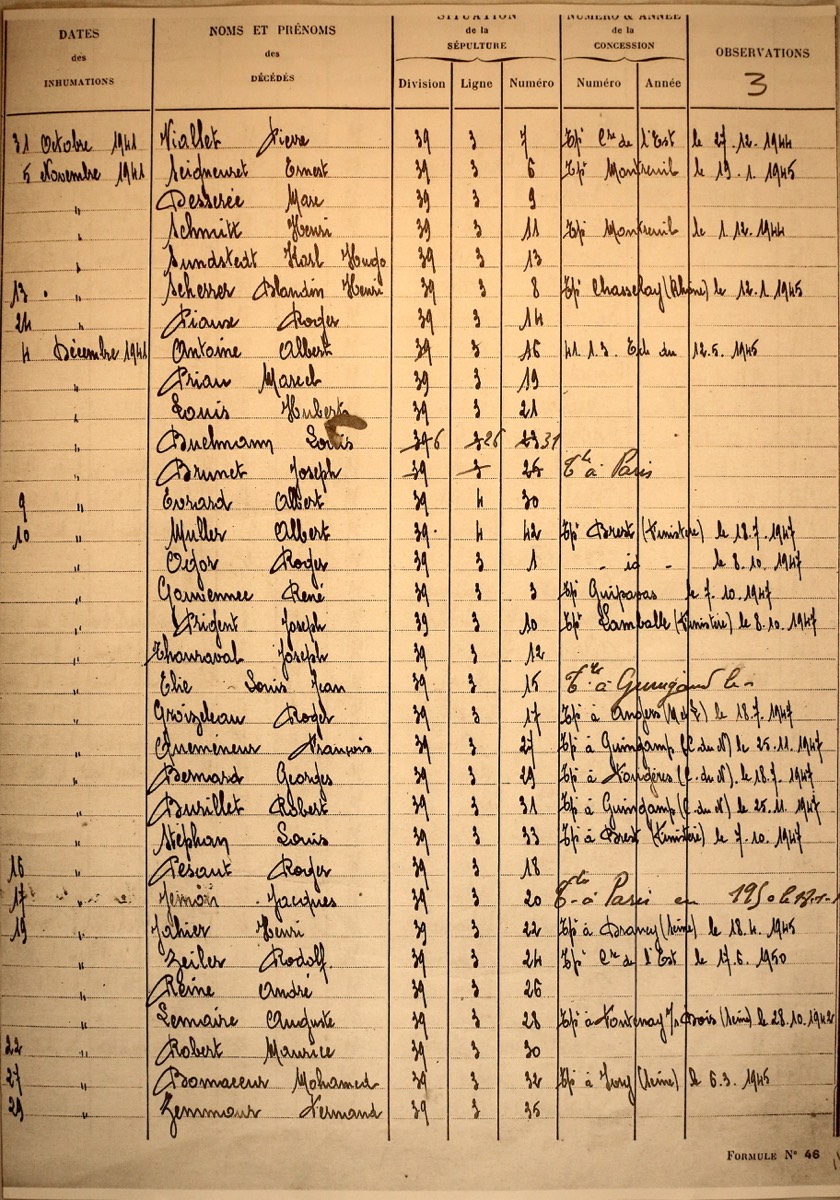 DATES des INHUMATIONS
NOMS ET PRÉNOMS des DÉCÉDÉS
SITUATION de la SÉPULTURE
Division Ligne Numéro
NUMÉRO & ANNÉE de la CONCESSION
Numéro Année
OBSERVATIONS
3
31 Octobre 1941 Viallet Pierre 39 3 7 Tpé Cre de l'Est le 27.12.1944
5 Novembre 1941 Seigneuret Ernest 39 3 6 Tpé Montreuil le 19.1.1945
" Desserée Marc 39 3 9
" Schmitt Henri 39 3 11 Tpé Montreuil le 1.12.1944
" Sundstedt Karl Hugo 39 3 13
13 " Scherrer Blandin Henri 39 3 8 Tpé Chasselay (Rhône) le 12.1.1945
24 " Roger 39 3 14
4 Décembre 1941 Antoine Albert 39 3 16 41.1.3. du 12.5.1945
" Priau Marcel 39 3 19
" Louis Hubert 39 3 21
" Buelmann Louis 39 6 3 26 23 31
" Brunet Joseph 39 3 à Paris
9 " Evrard Albert 39 4 30
10 " Muller Albert 39 4 42 Tpé Brest (Finistère) le 18.7.1947
" Roger 39 3 1 - id - le 8.10.1947
" René 39 3 3 Tpé Guipavas le 7.10.1947
" Prigent Joseph 39 3 10 Tpé Lamballe (Finistère) le 8.10.1947
" Thauraval Joseph 39 3 12
" Elie Louis Jean 39 3 15 à Guingand le -
" Groizeleau Roger 39 3 17 Tpé à Angers (M et L) le 18.7.1947
" Quemeneur François 39 3 27 Tpé à Guingamp (C. du N) le 25.11.1947
" Bernard Georges 39 3 29 Tpé à Fougères (C. du N). le 18.7.1947
" Busillet Robert 39 3 31 Tpé à Guingamp (C. du N) le 25.11.1947
" Stéphan Louis 39 3 33 Tpé à Brest (Finistère) le 7.10.1947
16 " Pesant Roger 39 3 18
17 " Jacques 39 3 20 à Paris en 1950
19 " Jahier Henri 39 3 22 Tpé à Drancy (Seine) le 18.4.1945
" Zeiler Rodolf 39 3 24 Tpé Cre de l'Est le 17.6.1950
" Reine André 39 3 26
" Lemaire Auguste 39 3 28 Tpé à Fontenay s/s Bois (Seine) le 28.10.1942
22 " Robert Maurice 39 3 30
27 " Bomaceur Mohamed 39 3 32 Tpé à Ivry (Seine) le 6.3.1945
29 " Zemmour Fernand 39 3 35
FORMULE N° 46